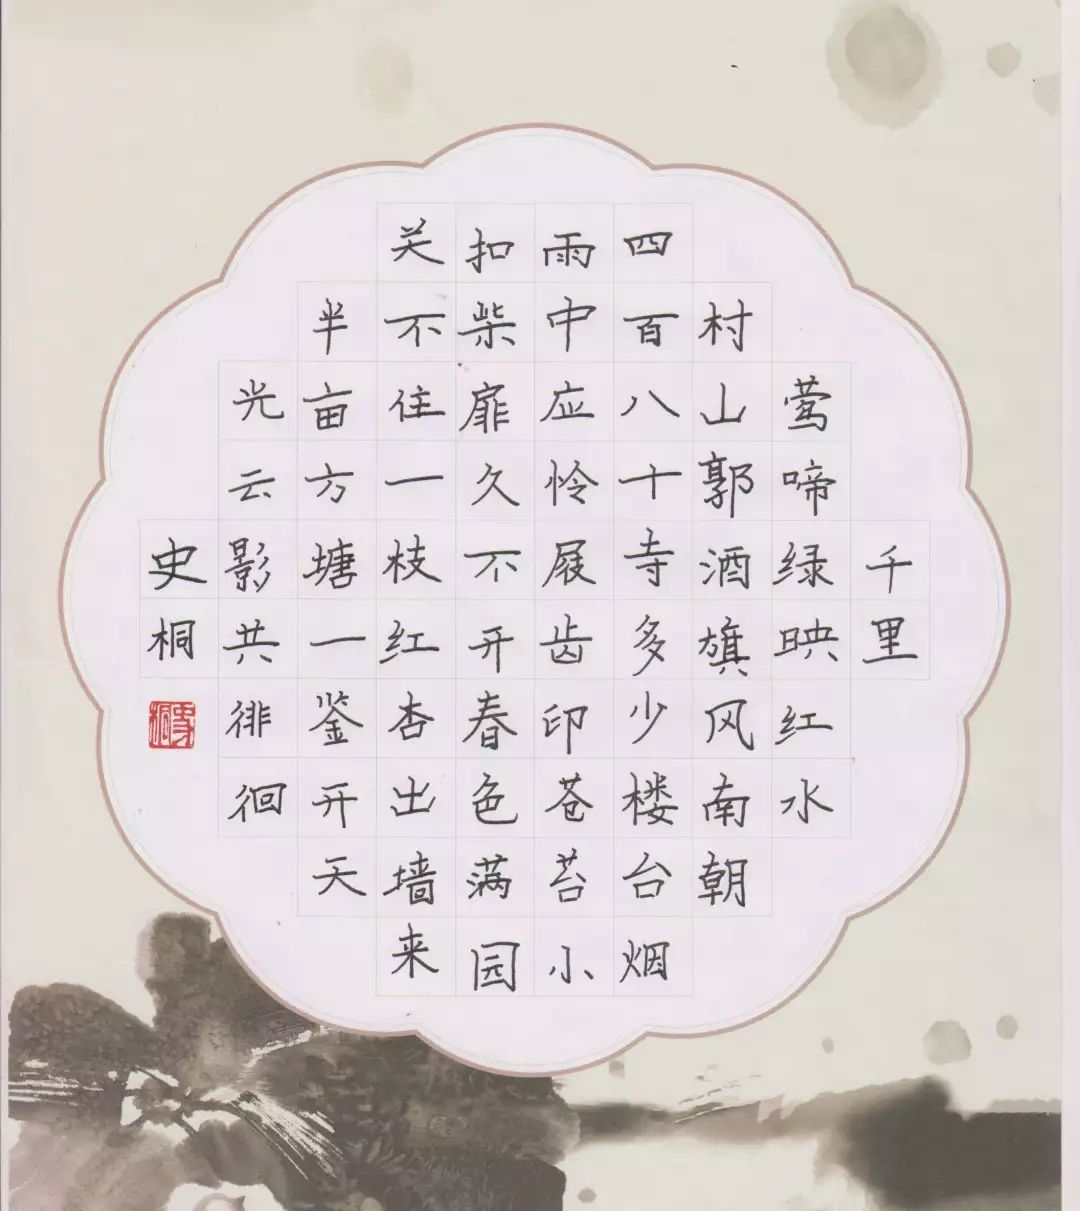 千里
莺啼绿映红水
村山郭酒旗风南朝
四百八十寺多少楼台烟
雨中应怜屐齿印苍苔小
扣柴扉久不开春色满园
关不住一枝红杏出墙来
半亩方塘一鉴开天
光云影共徘徊
史桐